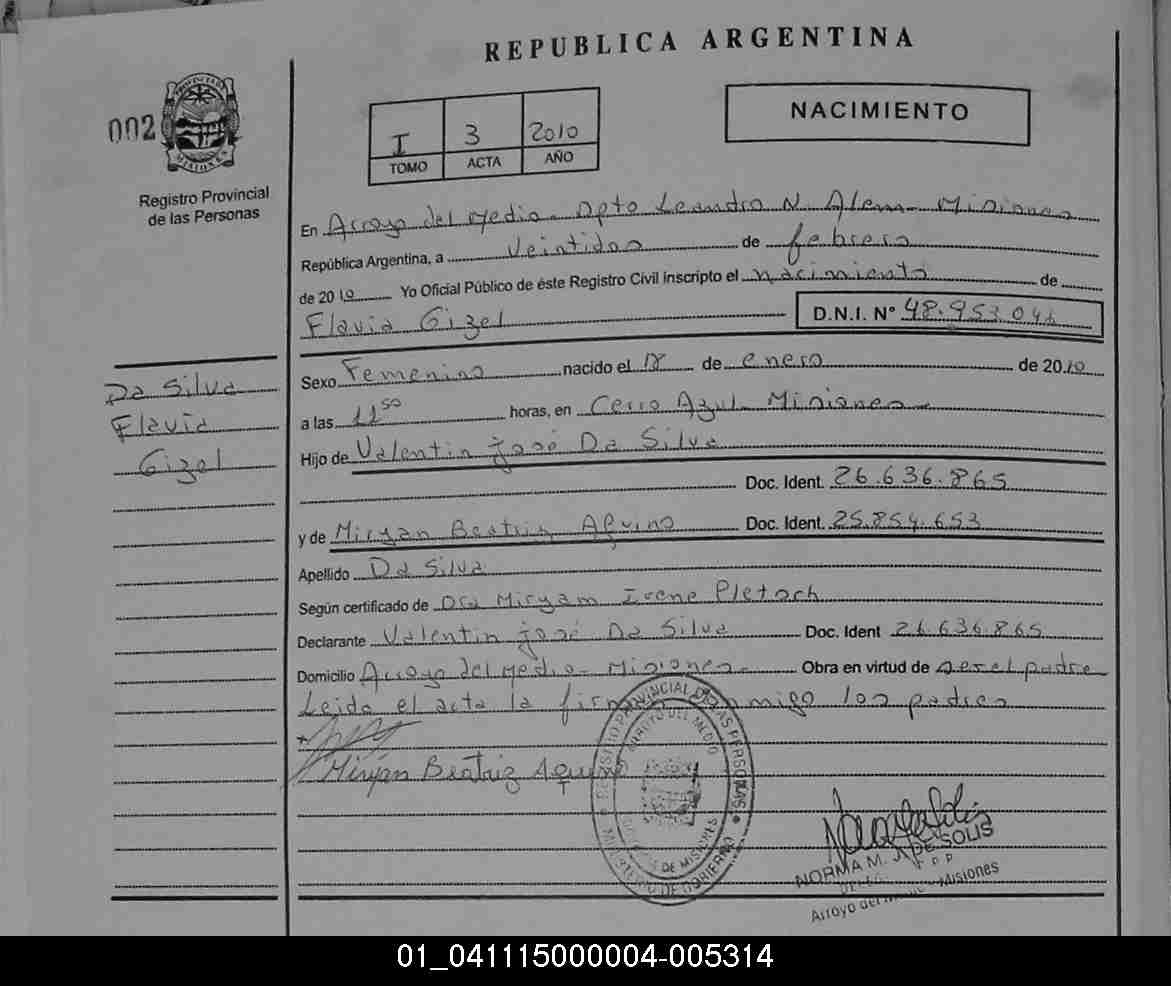 REPUBLICA ARGENTINA
002
PROVINCIA DE
MISIONES
Registro Provincial
de las Personas
I 3 2010
TOMO ACTA AÑO
NACIMIENTO
En Arroyo del Medio - Dpto Leandro N. Alem - Misiones
República Argentina, a veintidos de febrero
de 2010 Yo Oficial Público de éste Registro Civil inscripto el nacimiento de
Flavia Gizel D.N.I. Nº 48.953.04
Da Silva
Flavia
Gizel
Sexo Femenino nacido el de enero de 2010
a las 11 50 horas, en Cerro Azul - Misiones -
Hijo de Valentin josé Da Silva
Doc. Ident. 26.636.865
y de Miryan Beatriz Aquino Doc. Ident. 25.854.653
Apellido Da Silva
Según certificado de Dra Miryam Irene Pletsch
Declarante Valentin josé Da Silva Doc. Ident 26.636.865
Domicilio Arroyo del Medio - Misiones - Obra en virtud de ser el padre
Leida el acta la firman conmigo los padres
Miryan Beatriz Aquino
REGISTRO PROVINCIAL DE LAS PERSONAS
ARROYO DEL MEDIO
DE MISIONES
MINISTERIO DE GOBIERNO
NORMA M. J. DE SOLIS
Arroyo del Misiones
01_041115000004-005314